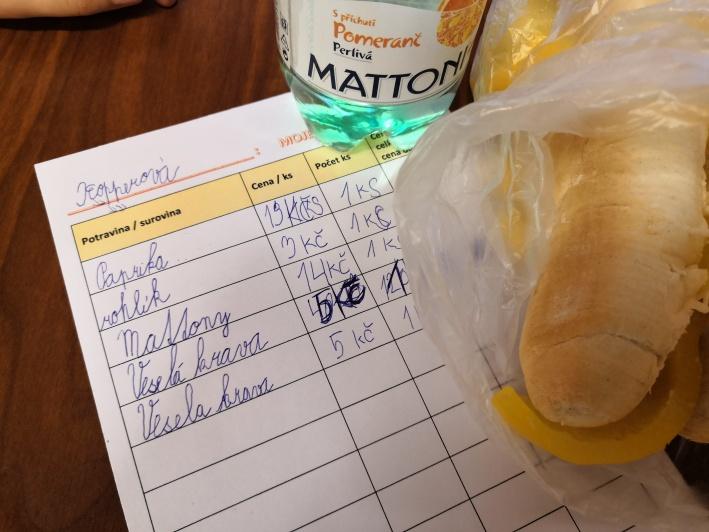 S příchutí
Pomeranč
Perlivá
MATTONI
Kopperová : MOJE
Potravina / surovina Cena / ks Počet ks
Paprika 1 ks
rohlík 3 kč 1 kč
Mattony 14 kč 1 k
Veselá krava
Vesela krava 5 kč 1